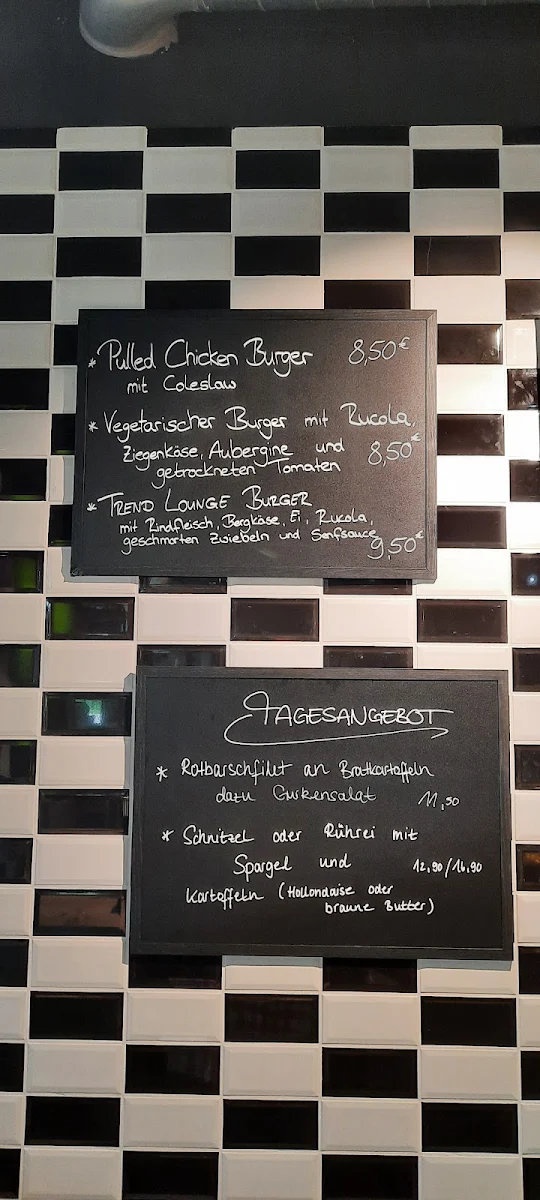 * Pulled Chicken Burger 8,50€
mit Coleslaw
* Vegetarischer Burger mit Rucola,
Ziegenkäse, Aubergine und 8,50€
getrockneten Tomaten
* TREND LOUNGE BURGER
mit Rindfleisch, Bergkäse, Ei, Rucola,
geschmorten Zwiebeln und Senfsauce
9,50€
TAGESANGEBOT
* Rotbarschfilet an Bratkartoffeln
dazu Gurkensalat 11,50
* Schnitzel oder Rührei mit
Spargel und 12,90/16,90
Kartoffeln (Hollondaise oder
braune Butter)